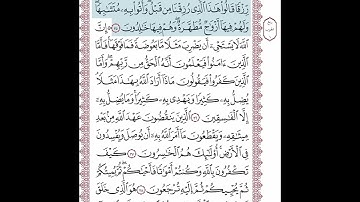 رِزْقًا قَالُوا۟ هَـٰذَا ٱلَّذِى رُزِقْنَا مِن قَبْلُ وَأُتُوا۟ بِهِۦ مُتَشَـٰبِهًا
وَلَهُمْ فِيهَآ أَزْوَٰجٌ مُّطَهَّرَةٌ وَهُمْ فِيهَا خَـٰلِدُونَ ٢٥ إِنَّ
ٱللَّهَ لَا يَسْتَحْىِۦٓ أَن يَضْرِبَ مَثَلًا مَّا بَعُوضَةً فَمَا فَوْقَهَا فَأَمَّا
ٱلَّذِينَ ءَامَنُوا۟ فَيَعْلَمُونَ أَنَّهُ ٱلْحَقُّ مِن رَّبِّهِمْ وَأَمَّا
ٱلَّذِينَ كَفَرُوا۟ فَيَقُولُونَ مَاذَآ أَرَادَ ٱللَّهُ بِهَـٰذَا مَثَلًا
يُضِلُّ بِهِۦ كَثِيرًا وَيَهْدِى بِهِۦ كَثِيرًا وَمَا يُضِلُّ بِهِۦٓ
إِلَّا ٱلْفَـٰسِقِينَ ٢٦ ٱلَّذِينَ يَنقُضُونَ عَهْدَ ٱللَّهِ مِنۢ بَعْدِ
مِيثَـٰقِهِۦ وَيَقْطَعُونَ مَآ أَمَرَ ٱللَّهُ بِهِۦٓ أَن يُوصَلَ وَيُفْسِدُونَ
فِى ٱلْأَرْضِ أُو۟لَـٰٓئِكَ هُمُ ٱلْخَـٰسِرُونَ ٢٧ كَيْفَ
تَكْفُرُونَ بِٱللَّهِ وَكُنتُمْ أَمْوَٰتًا فَأَحْيَـٰكُمْ ثُمَّ يُمِيتُكُمْ
ثُمَّ يُحْيِيكُمْ ثُمَّ إِلَيْهِ تُرْجَعُونَ ٢٨ هُوَ ٱلَّذِى خَلَقَ